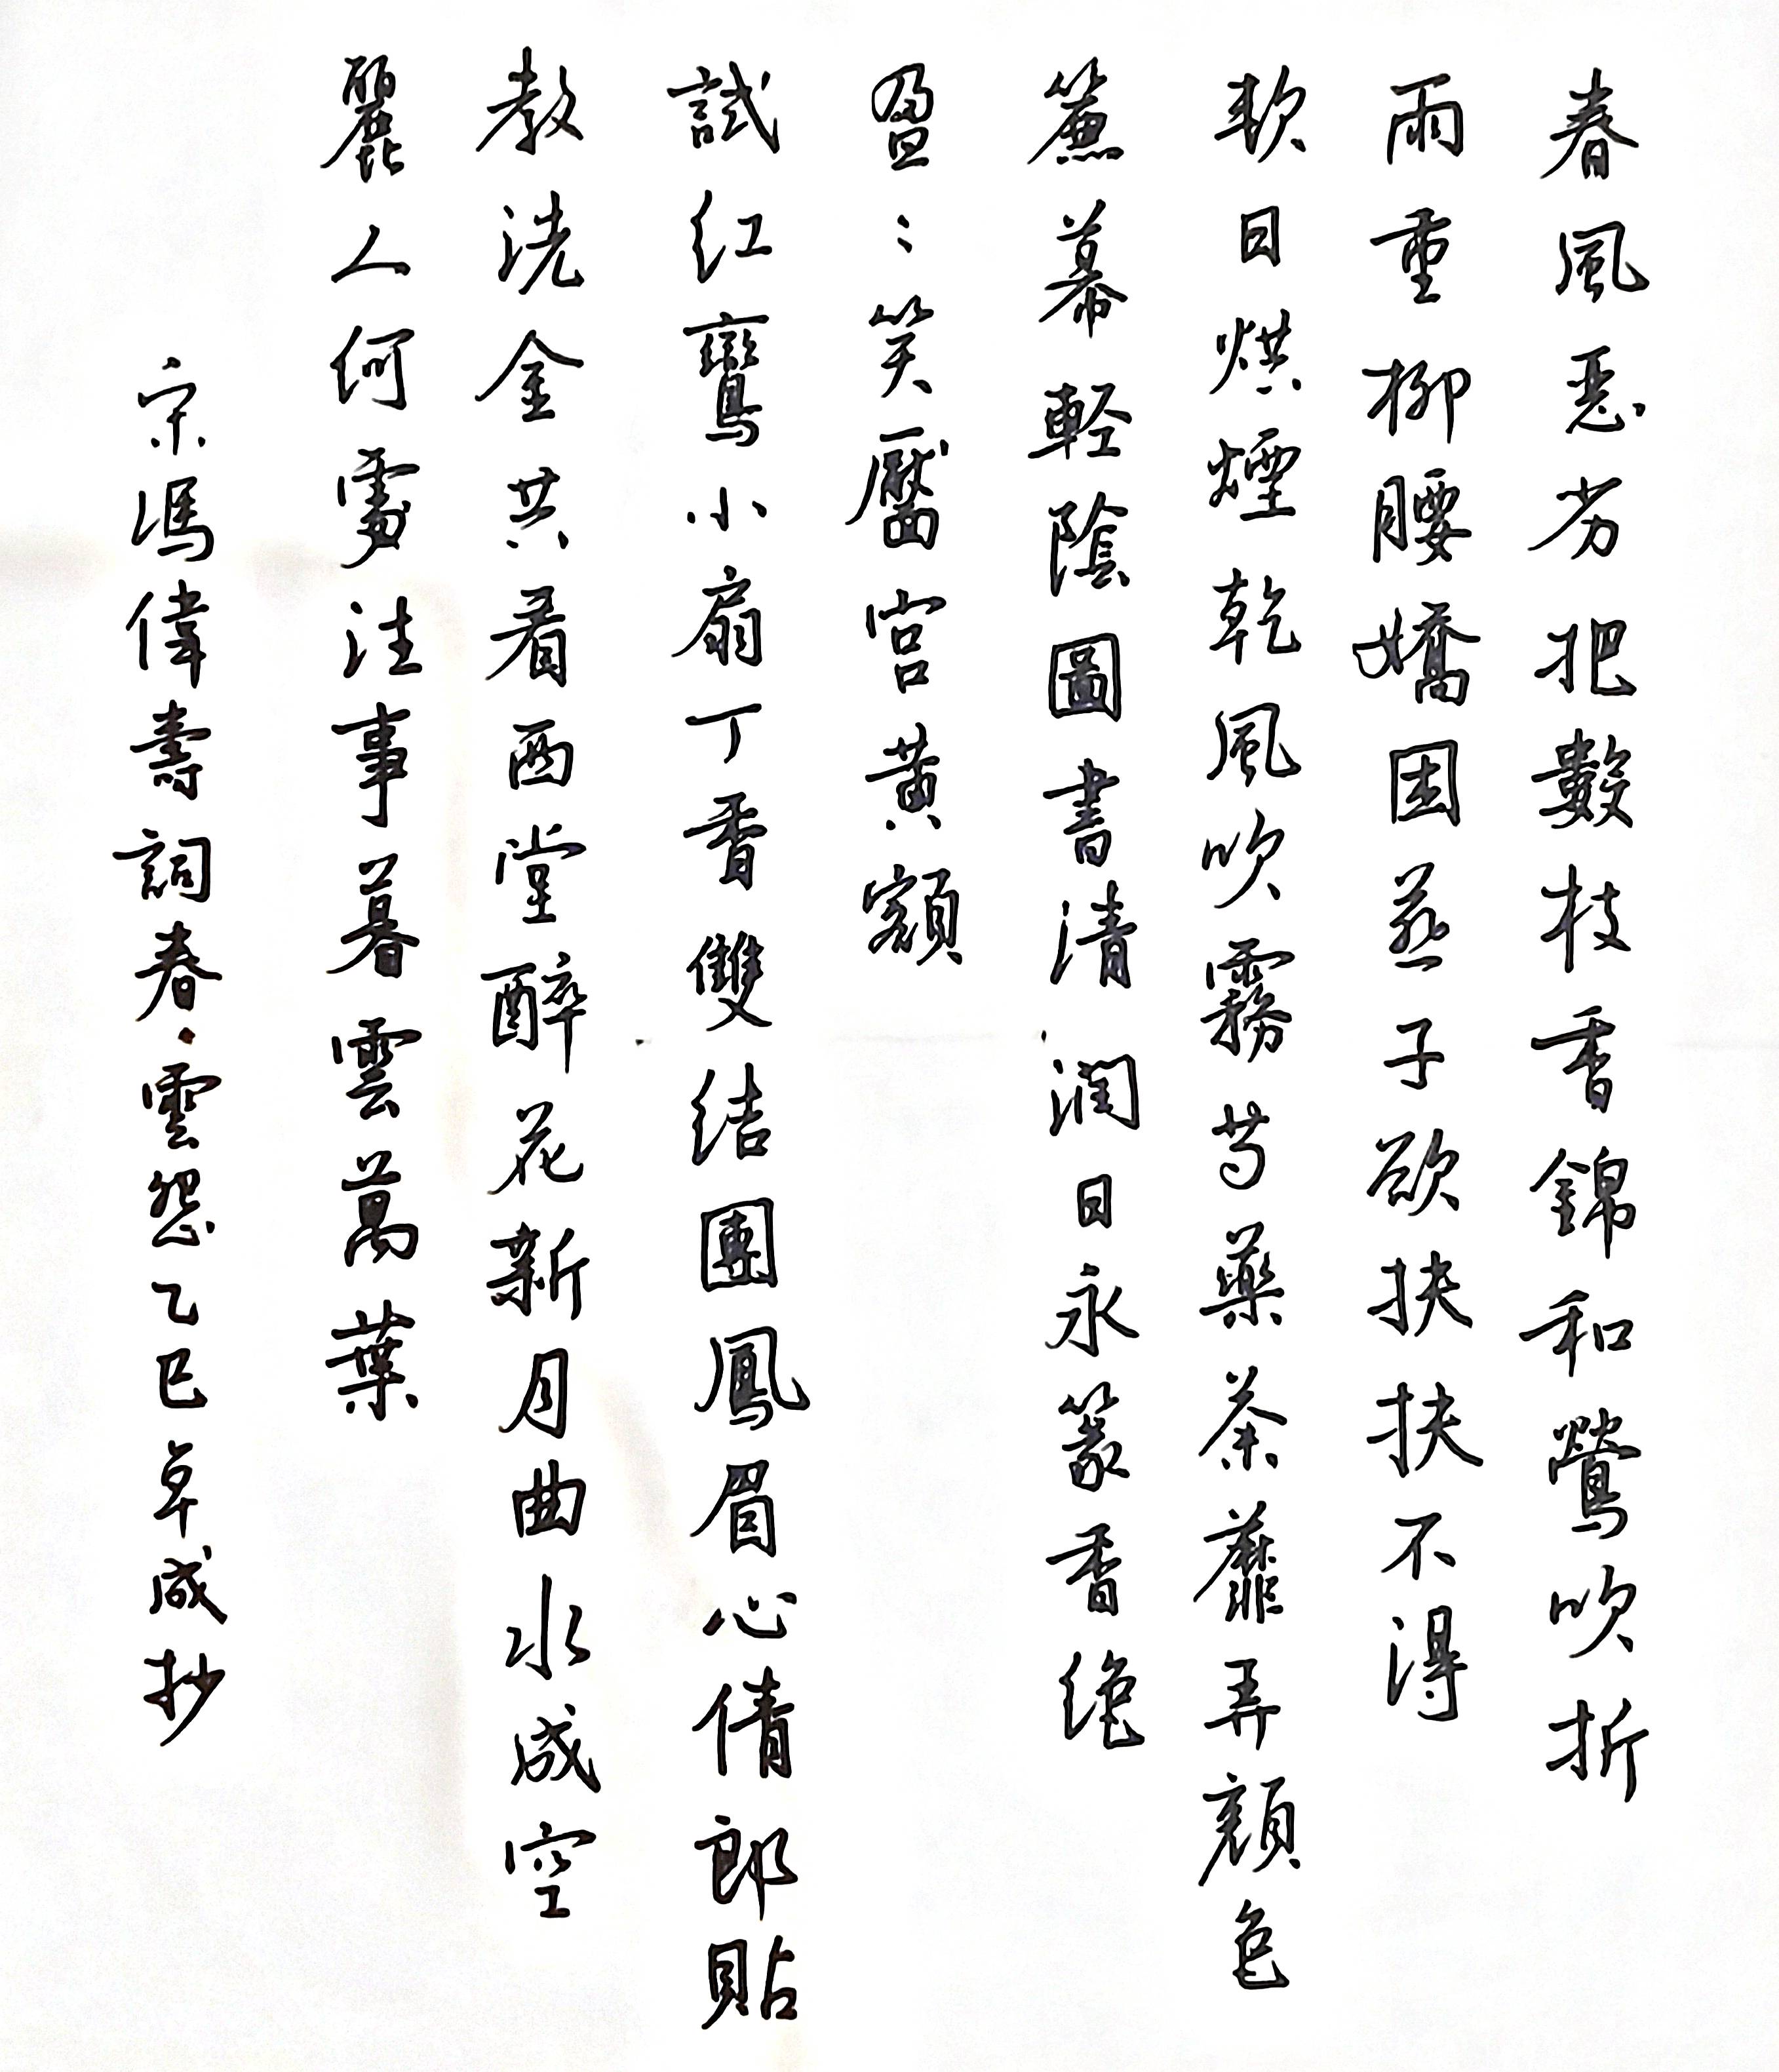 春風恶劣把數枝香錦和鶯吹折
雨重柳腰嬌困燕子欲扶扶不得
軟日烘煙乾風吹霧芍藥荼蘼弄顏色
簾幕軽陰圖書清潤日永篆香絕
盈〻笑靨宮黃額
試紅鸞小扇丁香雙結團鳳眉心倩郎貼
教洗金共看西堂醉花新月曲水成空
麗人何處往事暮雲萬葉
宋馮偉壽詞春·雲怨乙巳卓成抄